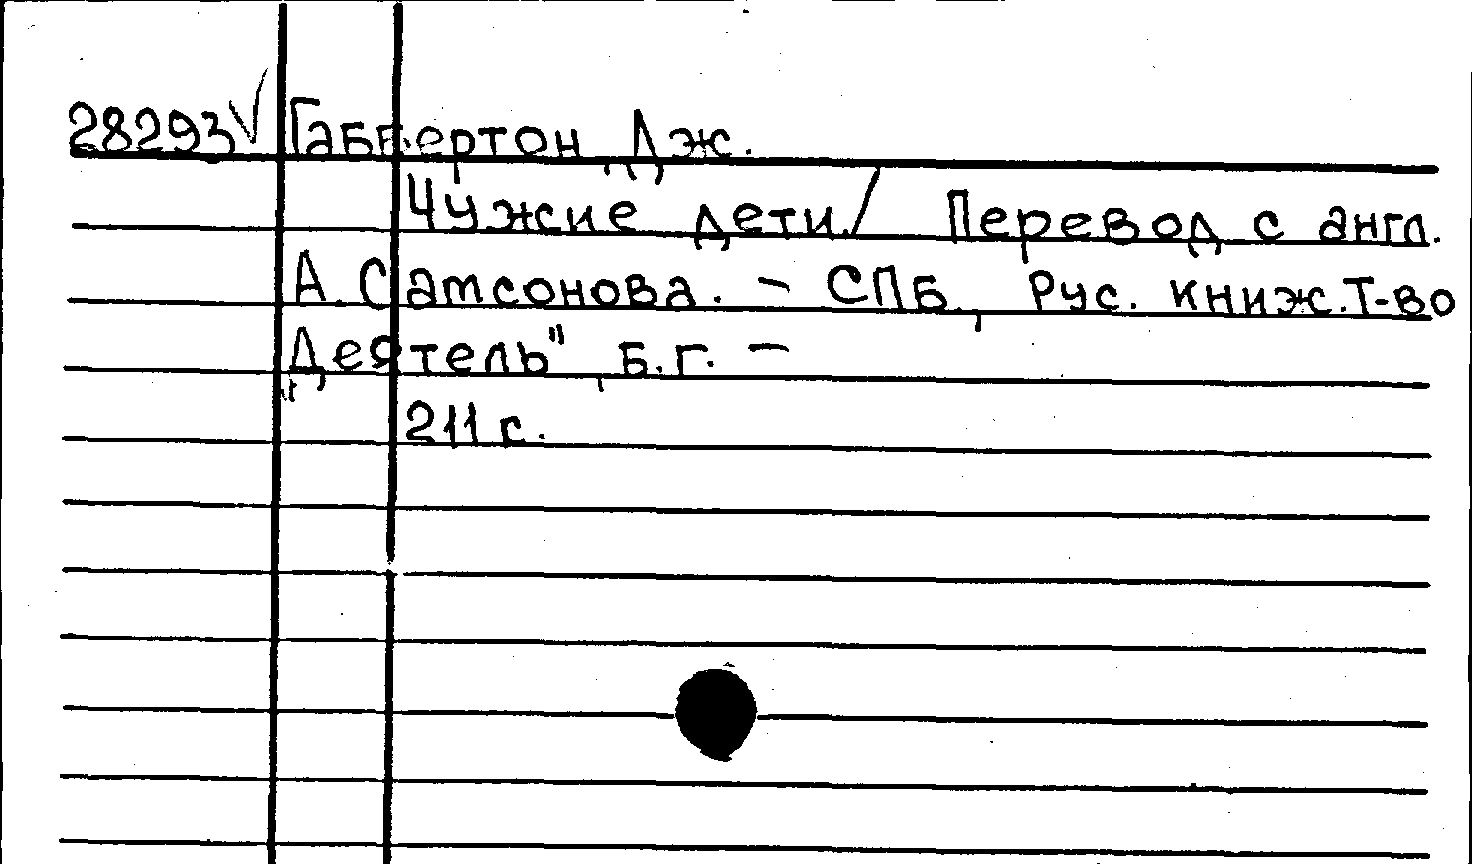 28293√ Габбертон Дж.
Чужие дети./ Перевод с англ.
А. Самсонова. - СПБ, Рус. книж. Т-во
Деятель", б.г. -
211 с.